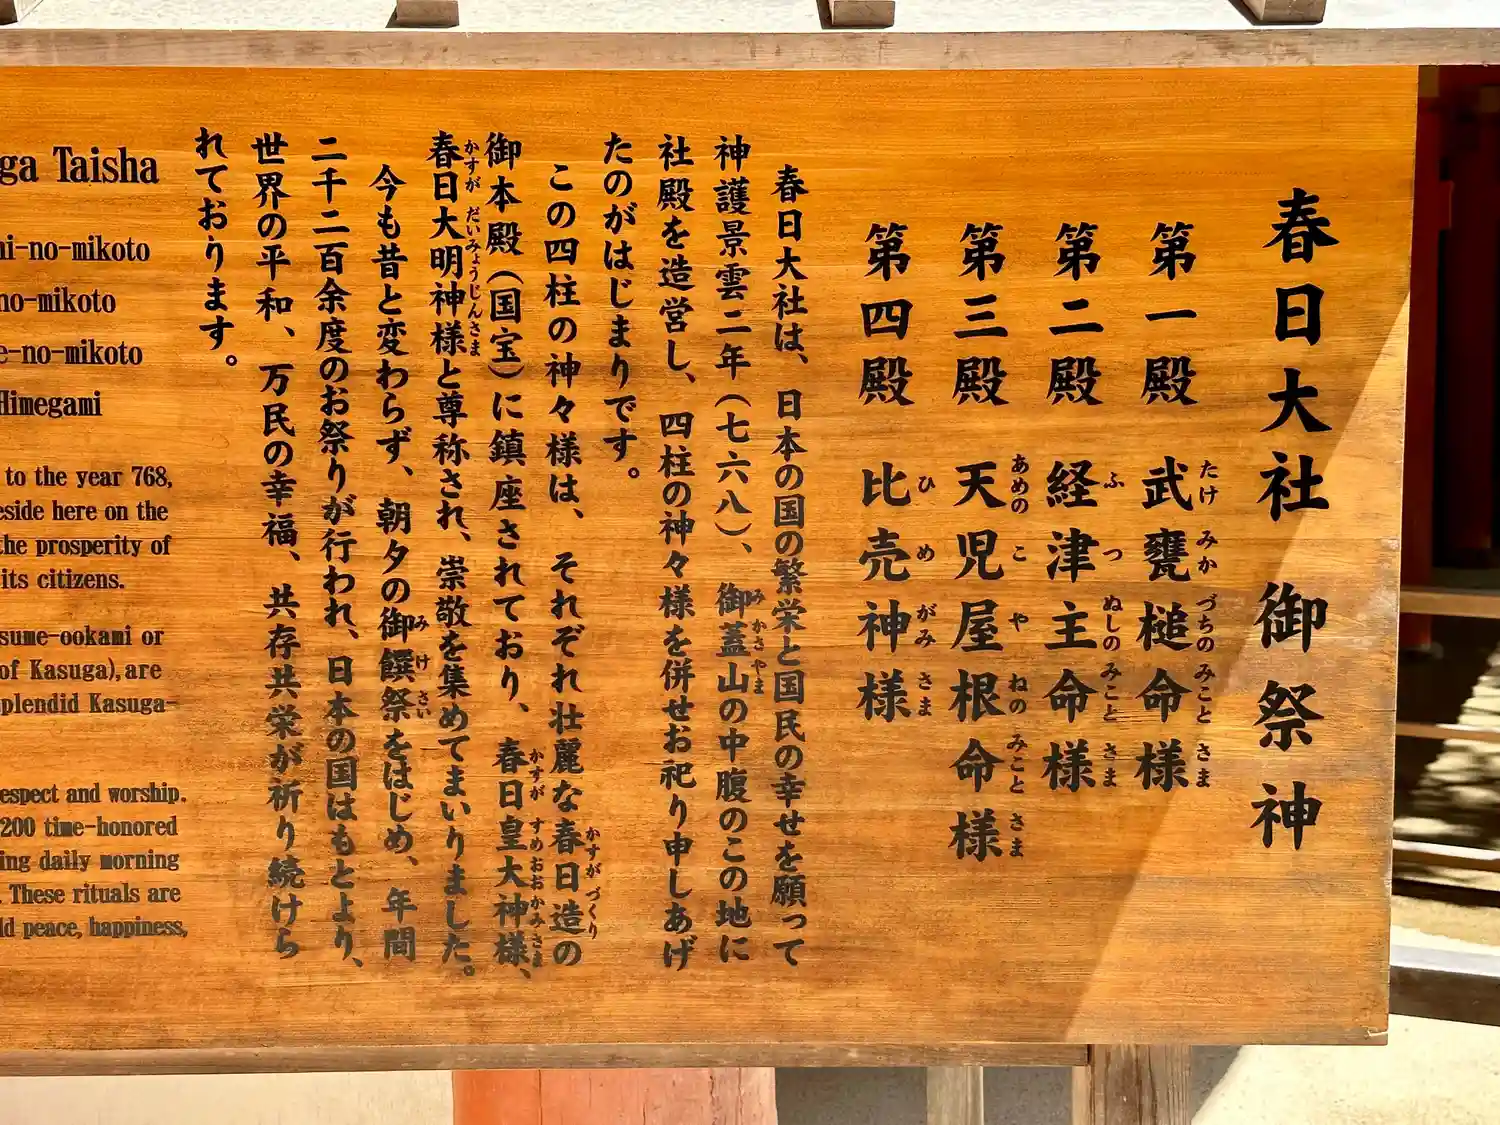 春日大社 御祭神
第一殿 武甕槌命様
たけ みか づちの みこと さま
第二殿 経津主命様
ふ つ ぬしの みこと さま
第三殿 天児屋根命様
あめの こ や ねの みこと さま
第四殿 比売神様
ひ め がみ さま
春日大社は、日本の国の繁栄と国民の幸せを願って
神護景雲二年(七六八)、御蓋山の中腹のこの地に
み かさ やま
社殿を造営し、四柱の神々様を併せお祀り申しあげ
たのがはじまりです。
この四柱の神々様は、それぞれ壮麗な春日造の
かすが づくり
御本殿(国宝)に鎮座されており、春日皇大神様、
かすが すめおおかみさま
春日大明神様と尊称され、崇敬を集めてまいりました。
かすが だいみょうじんさま
今も昔と変わらず、朝夕の御饌祭をはじめ、年間
み け さい
二千二百余度のお祭りが行われ、日本の国はもとより、
世界の平和、万民の幸福、共存共栄が祈り続けら
れております。
ga Taisha
-no-mikoto
no-mikoto
-no-mikoto
Himegami
to the year 768,
eside here on the
the prosperity of
its citizens.
sume-ookami or
of Kasuga), are
plendid Kasuga-
espect and worship.
200 time-honored
ing daily morning
. These rituals are
ld peace, happiness,